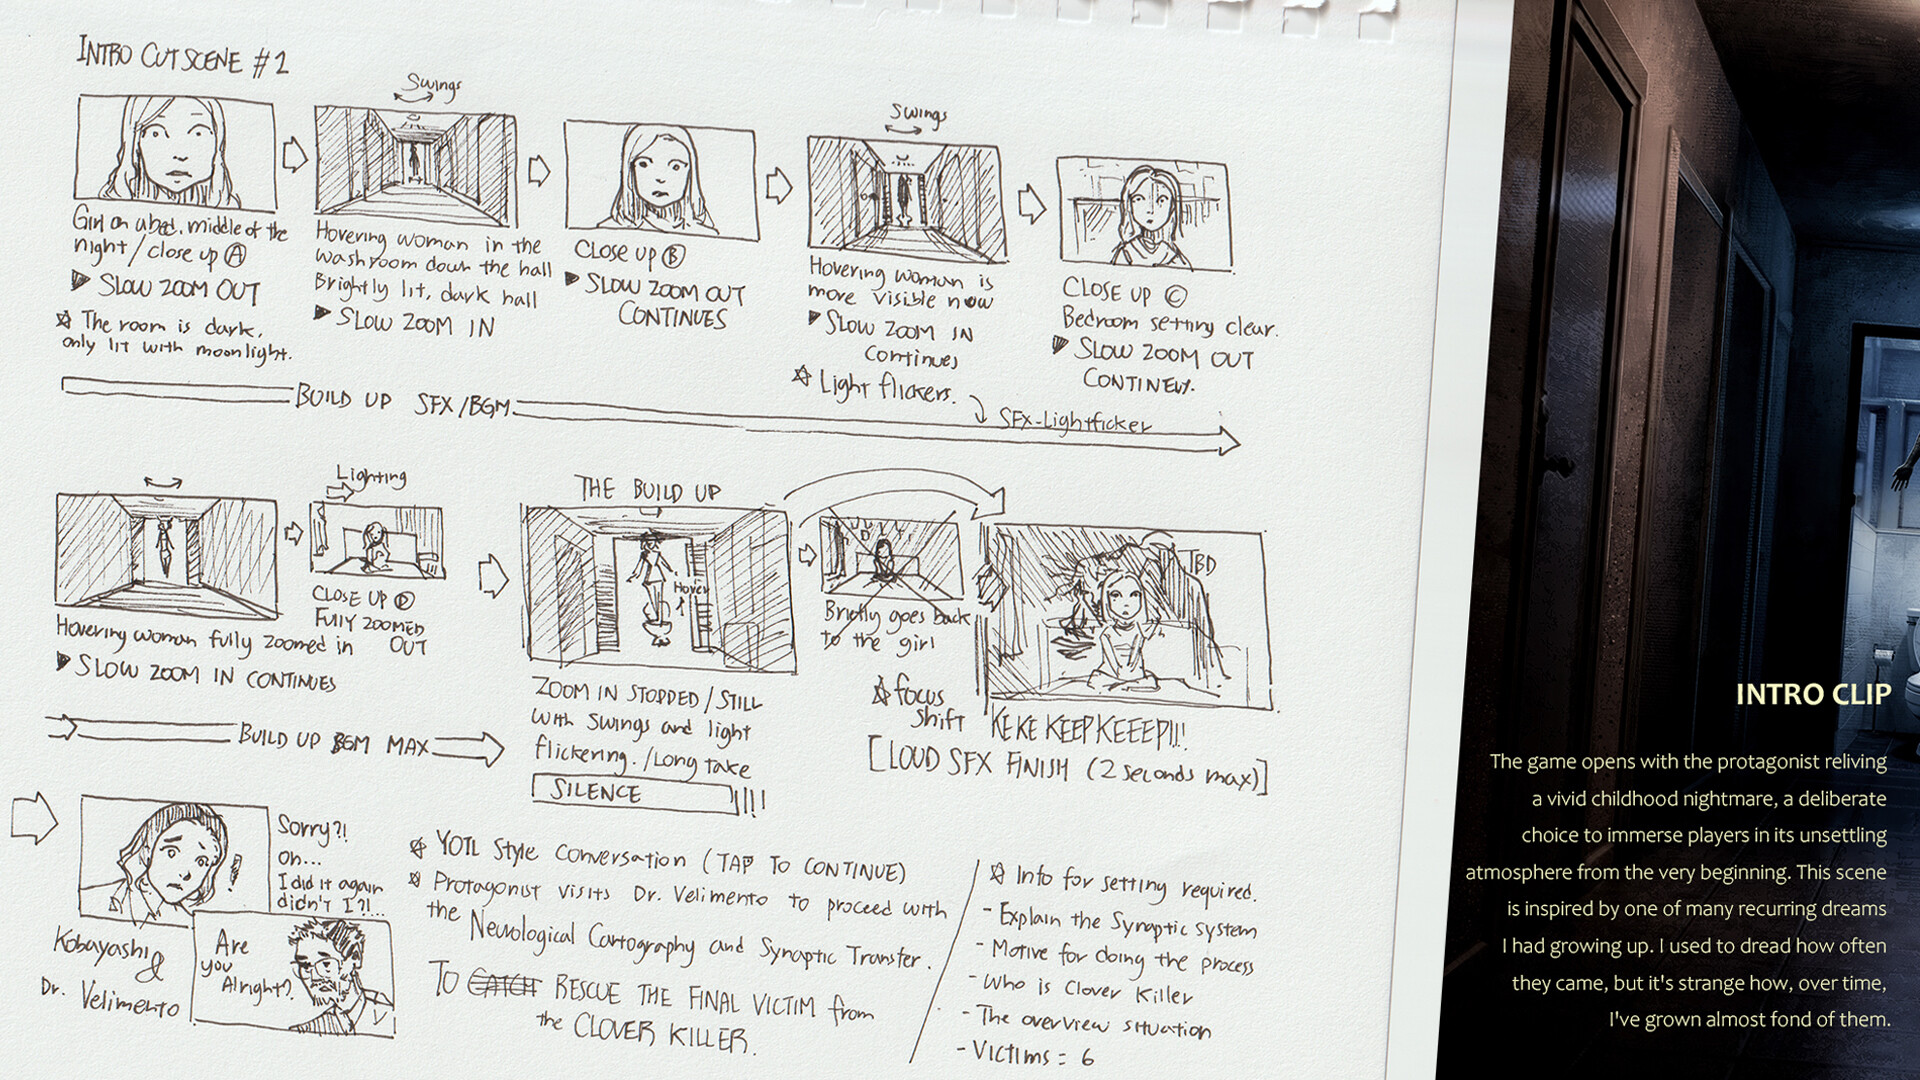 INTRO CUTSCENE #2
Swings
Girl on a bed, middle of the
night / close up A
SLOW ZOOM OUT
The room is dark,
only lit with moonlight.
Hovering woman in the
washroom down the hall
Brightly lit, dark hall
SLOW ZOOM IN
CLOSE UP B
SLOW ZOOM OUT
CONTINUES
Swings
Hovering woman is
more visible now
SLOW ZOOM IN
Continues
Light flickers.
CLOSE UP C
Bedroom setting clear.
SLOW ZOOM OUT
BUILD UP SFX/BGM
SFX-Lightflicker
Hovering woman fully zoomed in
SLOW ZOOM IN CONTINUES
Lighting
CLOSE UP D
FULLY ZOOMED
OUT
BUILD UP BGM MAX
THE BUILD UP
Hover
ZOOM IN STOPPED / STILL
with swings and light
flickering. / Long take
SILENCE
Briefly goes back
to the girl
focus
shift
TBD
KEKE KEEP KEEEP!!!
[LOUD SFX FINISH (2 seconds max)]
Sorry?!
Oh...
I did it again
didn't I?!...
Kobayashi
&
Dr. Velimento
Are
you
Alright?
YOTL Style Conversation (TAP TO CONTINUE)
Protagonist visits Dr. Velimento to proceed with
the Neurological Cartography and Synaptic Transfer.
TO CATCH RESCUE THE FINAL VICTIM from
the CLOVER KILLER.
Info for setting required.
- Explain the Synaptic system
- Motive for doing the process
- Who is Clover Killer
- The overview situation
- Victims = 6
INTRO CLIP
The game opens with the protagonist reliving
a vivid childhood nightmare, a deliberate
choice to immerse players in its unsettling
atmosphere from the very beginning. This scene
is inspired by one of many recurring dreams
I had growing up. I used to dread how often
they came, but it's strange how, over time,
I've grown almost fond of them.